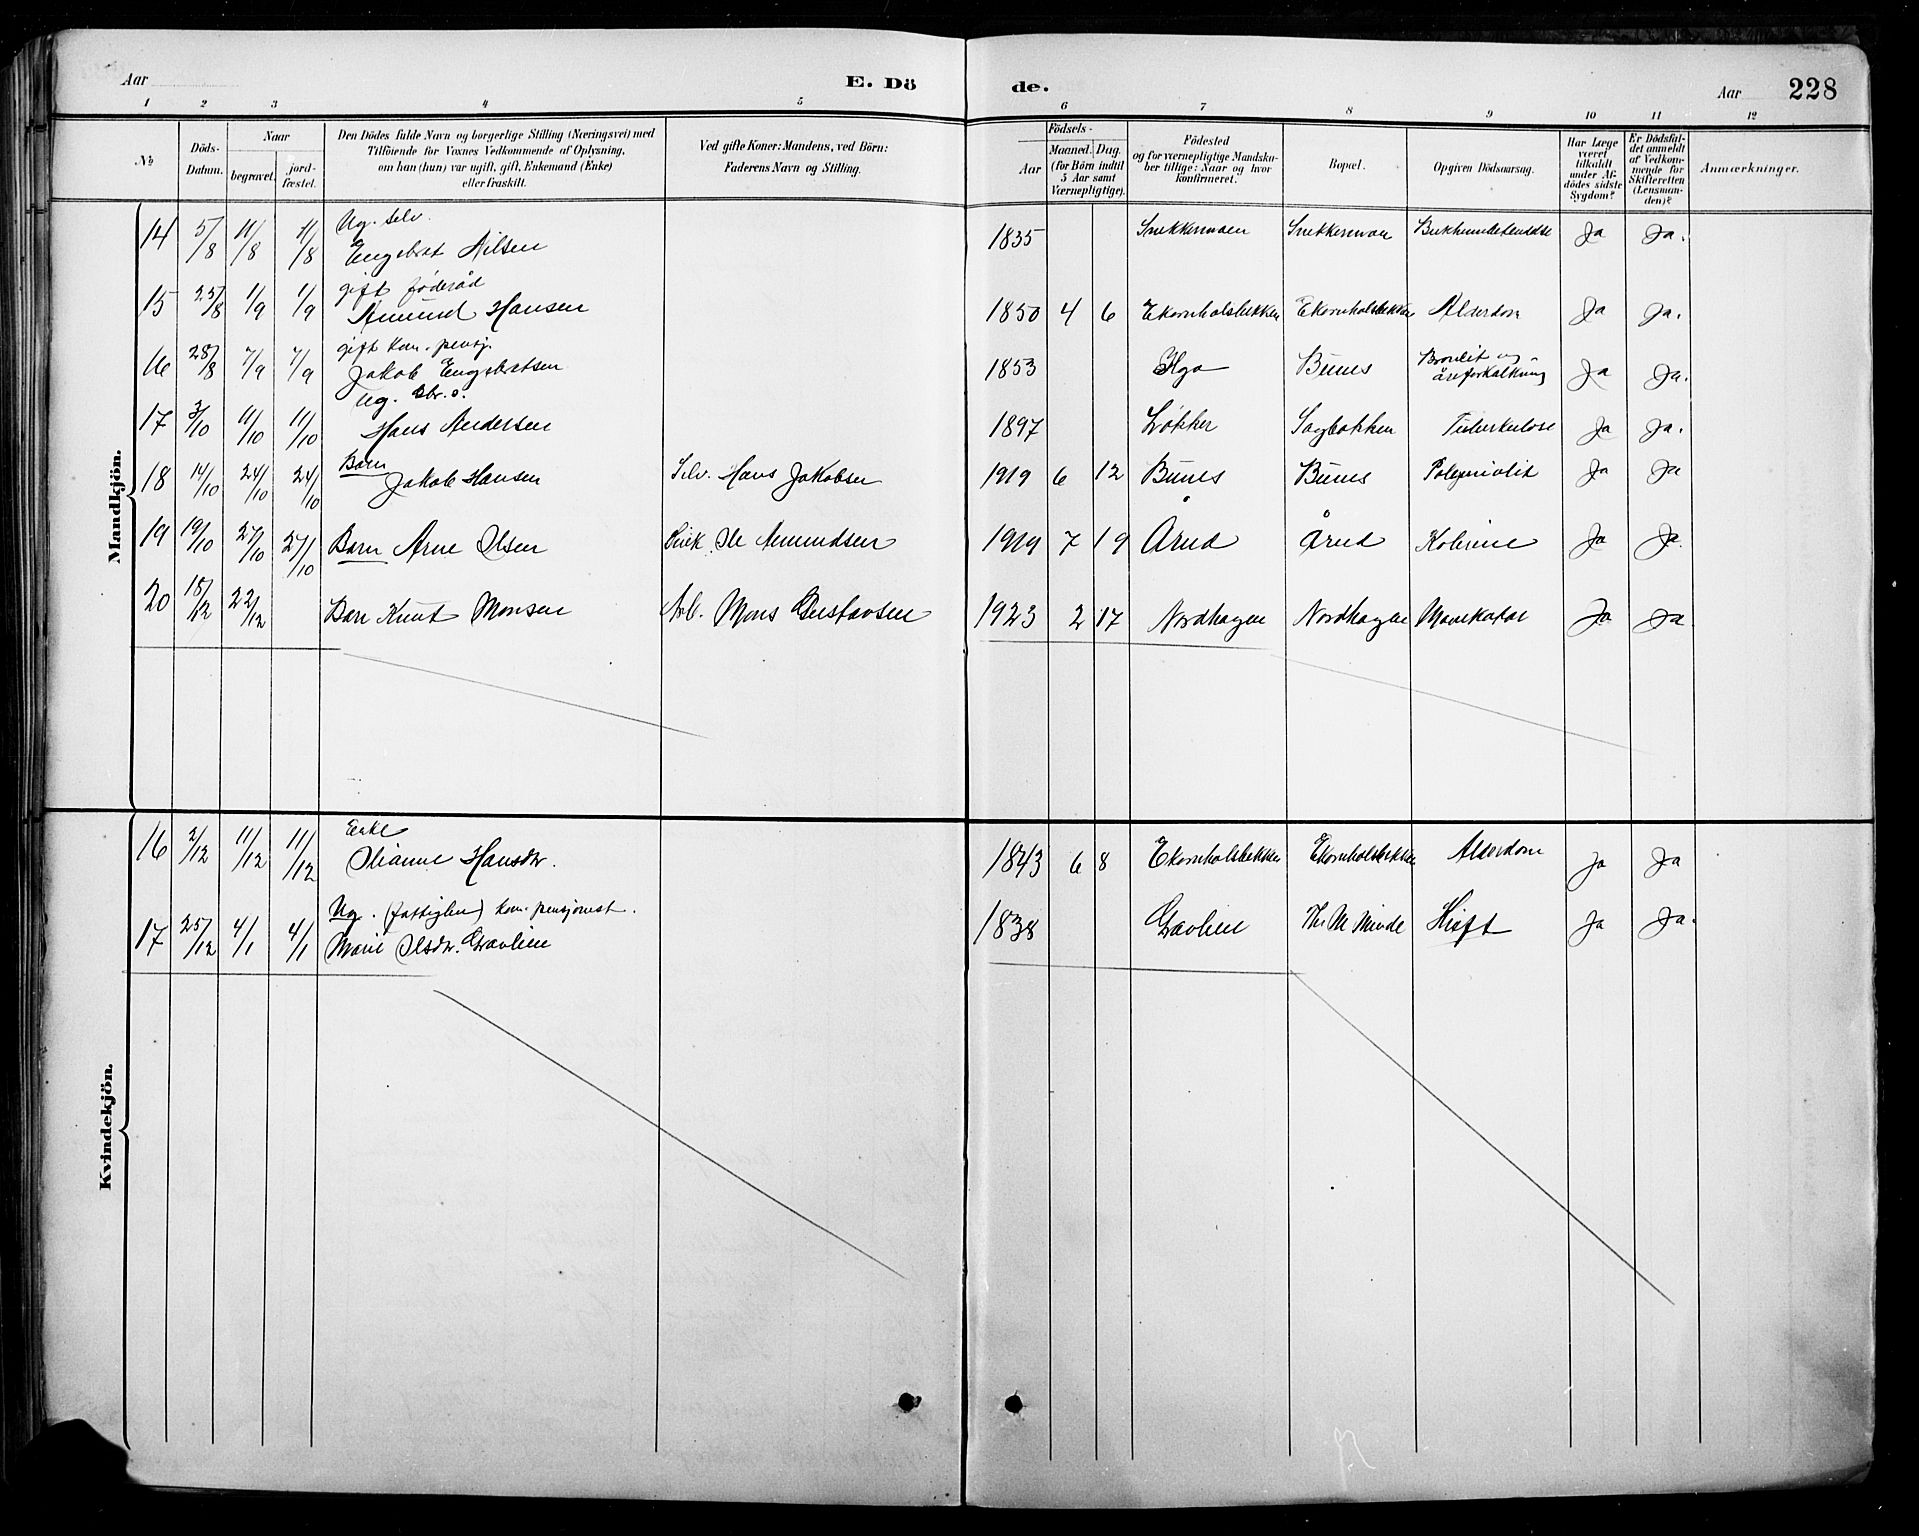 Aar E. Dö de. Aar 228
1 2 3 4 5 6 7 8 9 10 11 12
No
Döds-Datum.
Naar
begravet.
jordfæstet.
Den Dödes fulde Navn og borgerlige Stilling (Næringsvei) med
Tilföiende for Voxnes Vedkommende af Oplysning,
om han (hun) var ugift, gift, Enkemand (Enke)
eller fraskilt.
Ved gifte Koner: Mandens, ved Börn:
Faderens Navn og Stilling.
Födsels-
Aar
Maaned. Dag.
(for Börn indtil
5 Aar samt
Værnepligtige).
Födested
og for værnepligtige Mandska-
ber tillige: Naar og hvor
konfirmeret.
Bopæl.
Opgiven Dödsaarsag.
Har Læge
været
tilkaldt
under Af-
dödes sidste
Sygdom?
Er Dödsfal-
det anmeldt
af Vedkom-
mende for
Skifteretten
(Lensman-
den)?
Anmærkninger.
Mandkjön.
Ug. selv.
14 5/8 11/8 11/8 Engebret Nilsen 1835 Snekkermoen Snekkermoen Ja Ja.
gift føderåd
15 25/8 1/9 1/9 Amund Hansen 1850 4 6 Ekornholsbekken Ekornholsbekken Alderdom Ja Ja.
gift kom. pensj.
16 28/8 7/9 7/9 Jakob Engebretsen 1853 Bunes Bronkit og åreforkalkning Ja Ja.
Ug. Gbr.s.
17 3/10 11/10 11/10 Hans Andersen 1897 Løkker Sagbakken Tuberkulose Ja Ja.
Barn
18 14/10 24/10 24/10 Jakob Hansen Selv. Hans Jakobsen 1919 6 12 Bunes Bunes Ja Ja
19 19/10 27/10 27/10 Barn Arne Olsen Ole Amundsen 1919 7 19 Årud Årud Kolerine Ja Ja.
20 18/12 22/12 Barn Knut Monsen Arb. Mons Gustavsen 1923 2 17 Nordhagen Nordhagen Mavekatar Ja Ja
Kvindekjön.
Enke
16 2/12 11/12 11/12 Olianne Hansdtr. 1843 6 8 Ekornholsbekken Ekornholsbekken Alderdom Ja Ja
Ug. (fattiglem) kom. pensjonist.
17 25/12 4/1 4/1 Marie Olsdtr. Gravlien 1838 Gravlien Th. M. Minde Kræft Ja Ja.